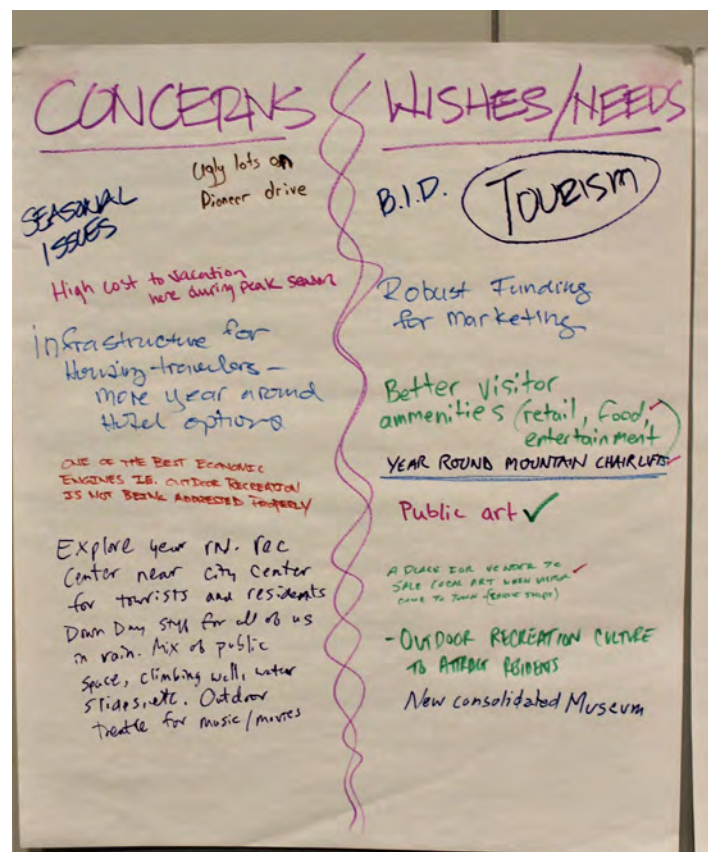 CONCERNS
Ugly lots on
Pioneer drive
SEASONAL
ISSUES
High cost to vacation
here during peak season
infrastructure for
Housing travelers -
more year around
Hotel options
ONE OF THE BEST ECONOMIC
ENGINES IE. OUTDOOR RECREATION
IS NOT BEING ADDRESSED PROPERLY
Explore year rn. rec
Center near city center
for tourists and residents
Down Day stuff for all of us
in rain. Mix of public
space, climbing wall, water
slides, etc. Outdoor
theatre for music/movies
WISHES/NEEDS
B.I.D. TOURISM
Robust Funding
for marketing
Better visitor
ammenities (retail, food,
entertainment)
YEAR ROUND MOUNTAIN CHAIRLIFTS
Public art ✓
A PLACE FOR VENDER TO
SALE LOCAL ART WHEN
COME TO TOWN
- OUTDOOR RECREATION CULTURE
TO ATTRACT RESIDENTS
New consolidated Museum